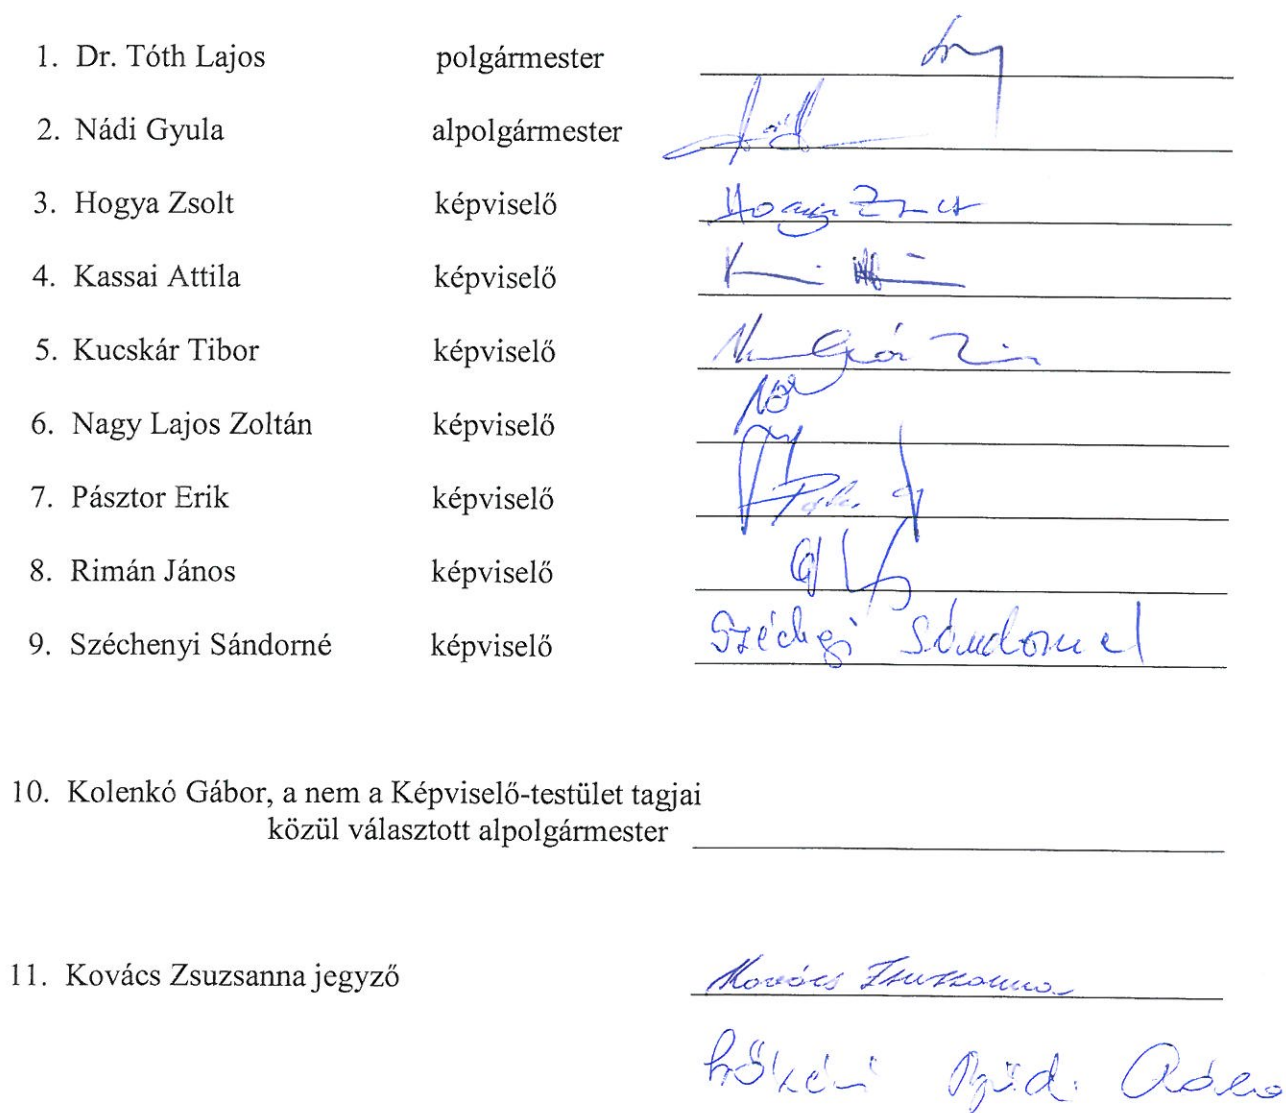 1. Dr. Tóth Lajos polgármester
2. Nádi Gyula alpolgármester
3. Hogya Zsolt képviselő Hogya Zsolt
4. Kassai Attila képviselő
5. Kucskár Tibor képviselő
6. Nagy Lajos Zoltán képviselő
7. Pásztor Erik képviselő
8. Rimán János képviselő
9. Széchenyi Sándorné képviselő
10. Kolenkó Gábor, a nem a Képviselő-testület tagjai
közül választott alpolgármester
11. Kovács Zsuzsanna jegyző Kovács Zsuzsanna